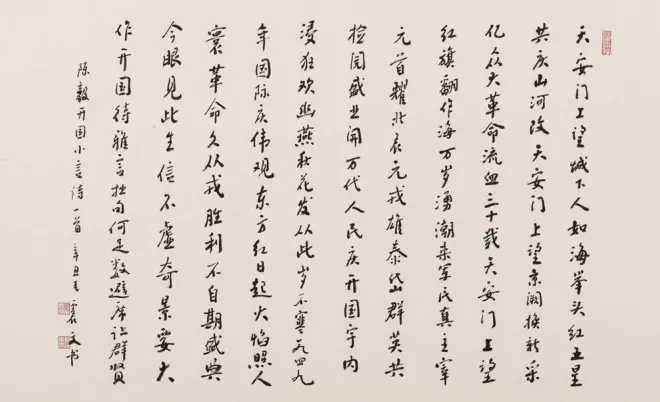 天安门上望城下人如海举头红五星
共庆山河改天安门上望京阙换新采
亿众大革命流血三十载天安门上望
红旗翻作海万岁涌潮来军民真主宰
元首耀北辰元戎雄泰岱群英共
检阅盛业开万代人民庆开国宇内
浸狂欢幽燕秋花发从此岁不寒一九四九
年国际庆伟观东方红日起火焰照人
寰革命久从戎胜利不自期盛典
今眼见此生信不虚奇景要大
作开国待雅言拙句何足数避席让群贤
陈毅开国小言诗一首辛丑 文书